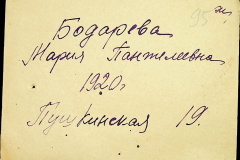 Бодарева
Мария Пантелеевна
1920г
Пушкинская 19.